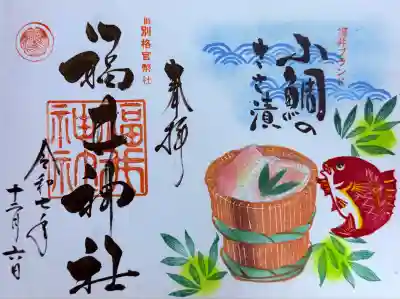 福井ブランド
小鯛の
ささ漬
奉拝
旧別格官幣社
福井神社
福井
神社
令和七年
十二月六日